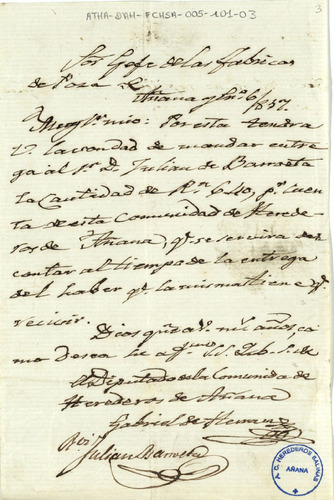 ATHA-DAH-FCHSA-005-101-03
3
Sor Gefe de las fabricas
de Poza
Añana y En.o 6/837.
Muy Sr. mio: Por esta tendra
V. la vondad de mandar entre
ga al Sr. D. Julian de Barroeta
la Cantidad de Rs. 640, pr. cuen
ta de esta Comunidad de Herede
ros de Añana, qe. se servira des
contar al tiempo de la entrega
del haber qe. la misma tiene qe.
recivir.
Dios gue. a V. ms. años, co
mo desea su
El Diputado de la Comunida de
Herederos de Añana
Gabriel de Herran
Rvi
Julian Barroeta
A. C. HEREDEROS SALINAS
AÑANA